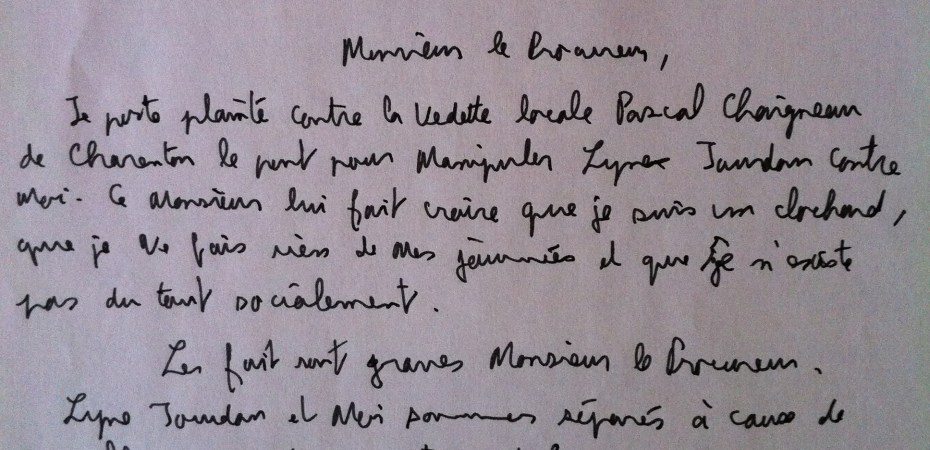 Monsieur le Procureur,
Je porte plainte contre la vedette locale Pascal Chaigneau
de Charenton le pont pour manipuler Lyne Jourdan contre
moi. Ce Monsieur lui fait croire que je suis un clochard,
que je ne fais rien de mes journées et que je n'existe
pas du tout socialement.
Les fait sont graves Monsieur le Procureur.
Lyne Jourdan et Moi sommes séparés à cause de